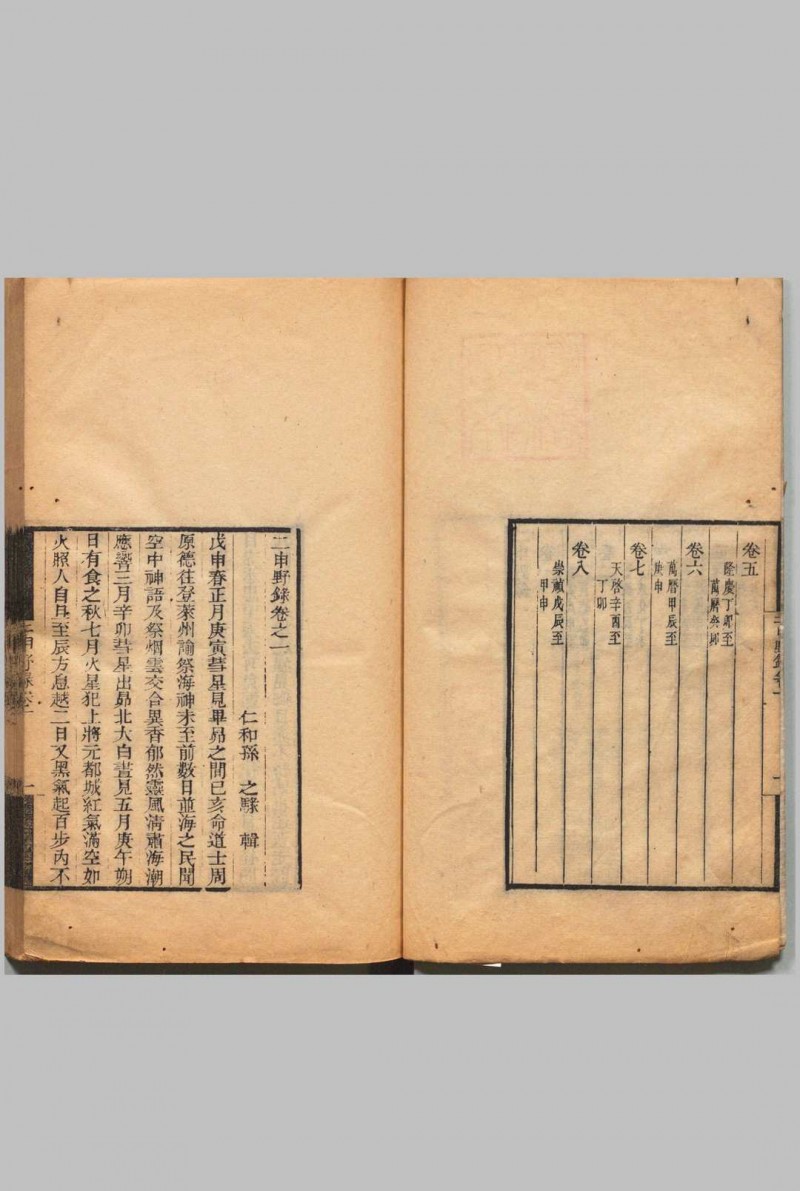 卷五
隆慶丁卯至
萬曆癸卯
卷六
萬曆甲辰至
庚申
卷七
天啓辛酉至
丁卯
卷八
崇禎戊辰至
甲申
二申野錄卷之一
仁和孫　之騄　輯
戊申春正月庚寅彗星見畢昴之間已亥命道士周
原德往登萊州諭祭海神未至前數日並海之民聞
空中神語及祭烟雲交合異香郁然靈風淸肅海潮
應響三月辛卯彗星出昴北大白晝見五月庚午朔
日有食之秋七月火星犯上將元都城紅氣滿空如
火照人自旦至辰方息越二日又黑氣起百步內不
二申野錄卷一
一